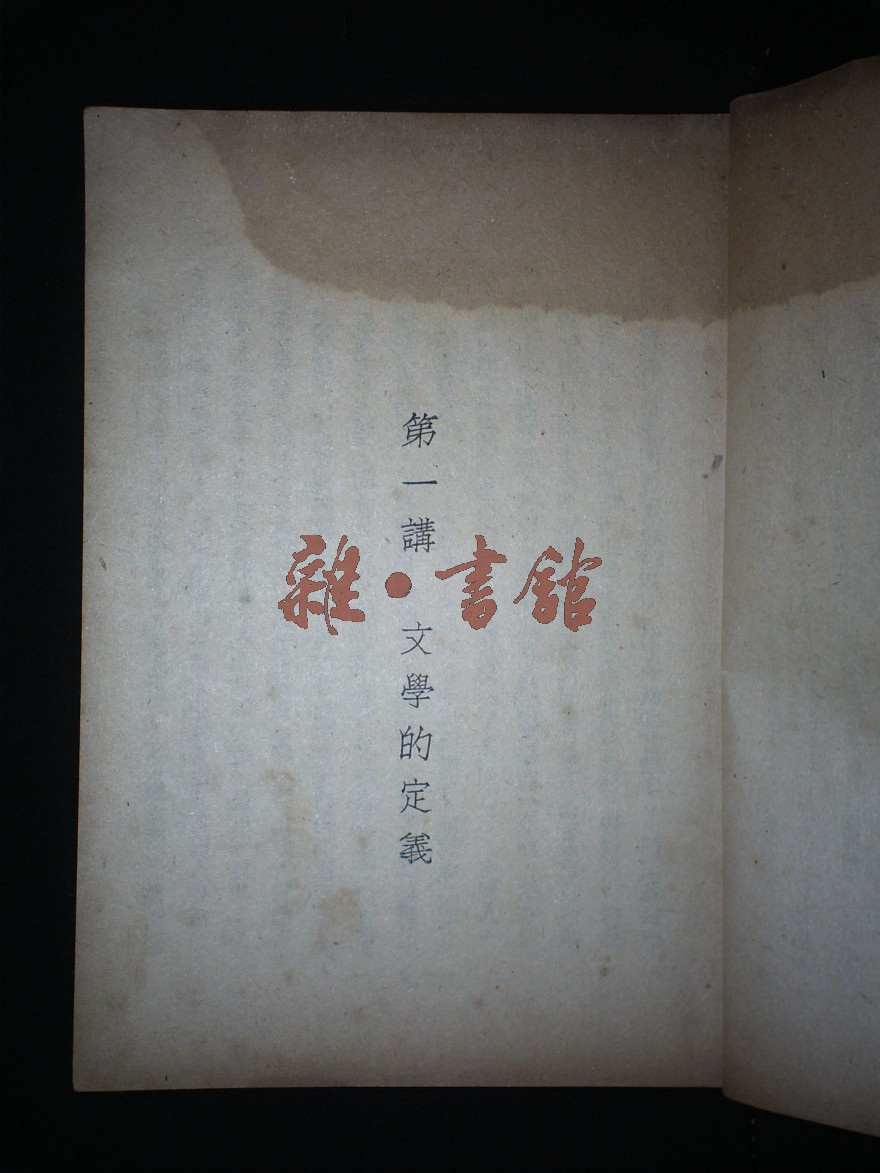 第一講 文學的定義
雜·書館